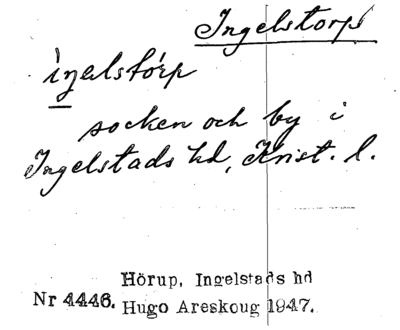 Ingelstorps
iŋelstórp
socken och by i
Ingelstads hd, Krist. l.
Hörup, Ingelstads hd
Nr 4446. Hugo Areskoug 1947.